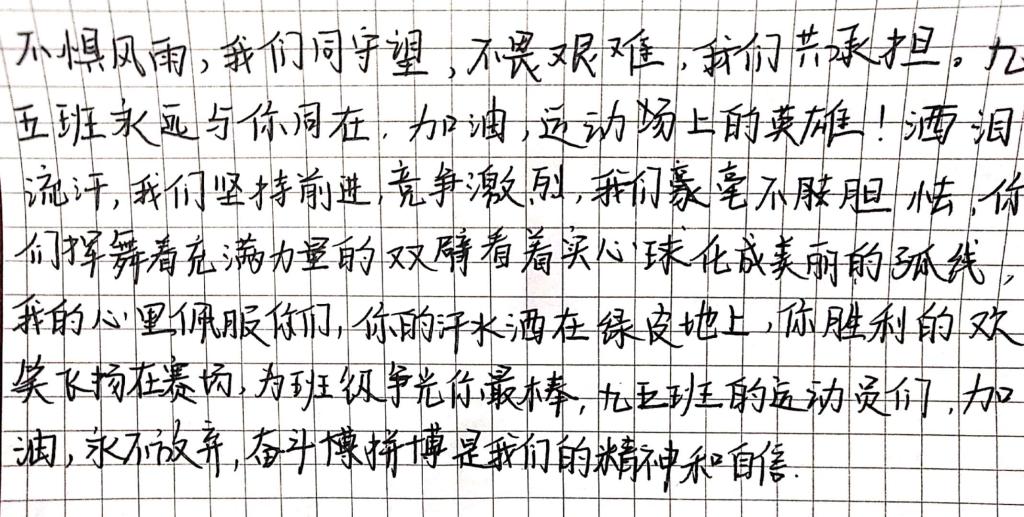 不惧风雨,我们同守望,不畏艰难,我们共承担。九
五班永远与你同在.加油,运动场上的英雄!洒泪
流汗,我们坚持前进,竞争激烈,我们豪毫不胺胆怯,你
们挥舞着充满力量的双臂看着实心球化成美丽的弧线,
我的心里佩服你们,你的汗水洒在绿皮地上,你胜利的欢
笑飞扬在赛场,为班级争光你最棒,九五班的运动员们,加
油,永不放弃,奋斗博拼博是我们的精神和自信.